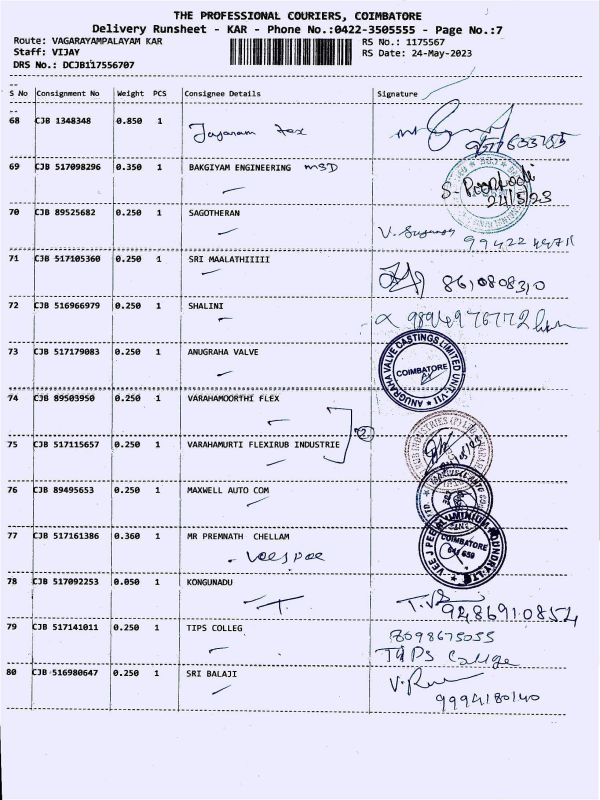 THE PROFESSIONAL COURIERS, COIMBATORE
Delivery Runsheet - KAR - Phone No.:0422-3505555 - Page No.:7
Route: VAGARAYAMPALAYAM KAR RS No.: 1175567
Staff: VIJAY RS Date: 24-May-2023
DRS No.: DCJB117556707
S No Consignment No Weight PCS Consignee Details Signature
68 CJB 1348348 0.850 1 Jayaram Tex
69 CJB 517098296 0.350 1 BAKGIYAM ENGINEERING MSD
24/5/23
70 CJB 89525682 0.250 1 SAGOTHERAN
71 CJB 517105360 0.250 1 SRI MAALATHIIIII
72 CJB 516966979 0.250 1 SHALINI
73 CJB 517179083 0.250 1 ANUGRAHA VALVE
ANUGRAHA VALVE CASTINGS LIMITED UNIT-VII
COIMBATORE
74 CJB 89503950 0.250 1 VARAHAMOORTHI FLEX
2
75 CJB 517115657 0.250 1 VARAHAMURTI FLEXIRUB INDUSTRIE
76 CJB 89495653 0.250 1 MAXWELL AUTO COM
77 CJB 517161386 0.360 1 MR PREMNATH CHELLAM
COIMBATORE
641 659
78 CJB 517092253 0.050 1 KONGUNADU
9486910854
79 CJB 517141011 0.250 1 TIPS COLLEG
8098675055
TIPS College
80 CJB 516980647 0.250 1 SRI BALAJI
9994180140